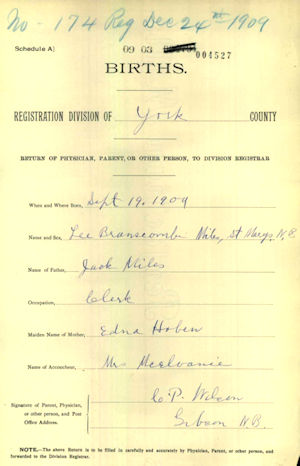 No- 174 Reg Dec 24th 1909
Schedule A) 09 03 004527
BIRTHS.
REGISTRATION DIVISION OF York COUNTY
RETURN OF PHYSICIAN, PARENT, OR OTHER PERSON, TO DIVISION REGISTRAR
When and Where Born, Sept 19. 1909
Name and Sex, Lee Branscombe Miles, St Marys, N.B.
Name of Father, Jack Miles
Occupation, Clerk
Maiden Name of Mother, Edna Hoben
Name of Accoucheur, Mrs
C. P. Wilson
Signature of Parent, Physician,
or other person, and Post
Office Address. Gibson N.B.
NOTE.—The above Return is to be filled in carefully and accurately by Physician, Parent, or other person, and
forwarded to the Division Registrar.